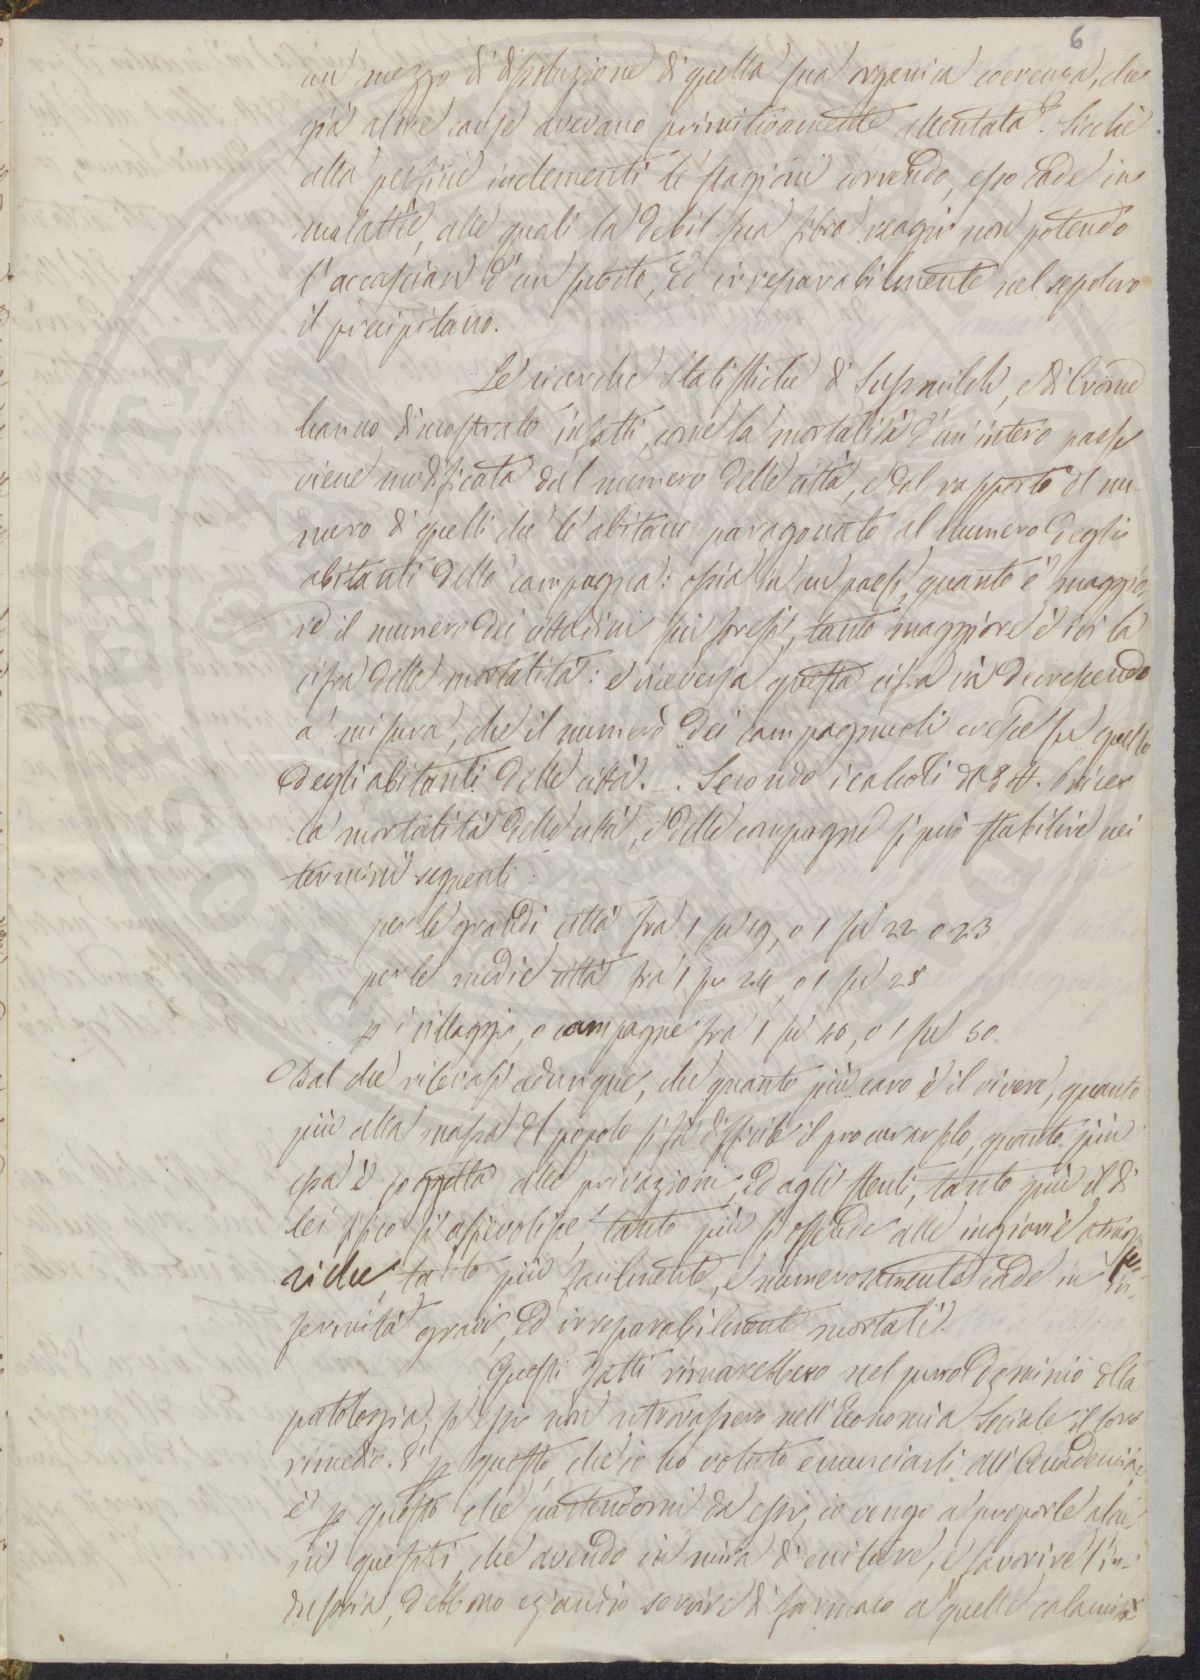 6
un mezzo di dissoluzione di quella sua organica coerenza, che
già altre cause avevano primitivamente attentata. Sicchè
alla perfine inclementi le stagioni correndo, esso cade in
malattie, alle quali la debil sua fibra reagir non potendo
l'accasciano d'un subito, ed irreparabilmente nel sepolcro
il precipitano.
Le ricerche statistiche di Susmilch, e di Crome
hanno dimostrato infatti, come la mortalità d'un intero paese
viene modificata dal numero delle città, e dal rapporto del nu-
mero di quelli che le abitano paragonato al numero degli
abitanti della campagna: ossia in un paese, quanto è maggio-
re il numero dei cittadini sui foresi, tanto maggiore è ivi la
cifra della mortalità: e viceversa questa cifra và decrescendo
a misura, che il numero dei campagnuoli cresce su quello
degli abitanti delle città. Secondo i calcoli del Sr. Pricer
la mortalità delle città, e delle campagne si può stabilire nei
termini seguenti:
per le grandi città frà 1 su 19, o 1 su 22 o 23
per le medie città frà 1 su 24, o 1 su 28
p i villaggi, o campagne frà 1 su 40, o 1 su 50.
Dal che rilevasi adunque, che quanto più caro è il vivere, quanto
più alla massa del popolo si fà difficile il procurarselo, quanto più
essa è soggetta alle privazioni, ed agli stenti, tanto più il di
lei fisico si affievolisce, tanto più si offende alle ingiurie atmosfe-
riche, tanto più facilmente, e numerosamente cade in in-
fermità gravi, ed irreparabilmente mortali.
Questi fatti rimarrebbero nel puro dominio della
patologia, se essi non ritrovassero nell'Economia Sociale il loro
rimedio. È p questo, che io ho voluto enunciarli all'Accademia,
è p questo che partendomi da essi, io vengo a proporle alcu-
ni quesiti, che avendo in mira di eccitare, e favorire l'in-
dustria, debbono eziandio servire di farmaco a quelle calamità